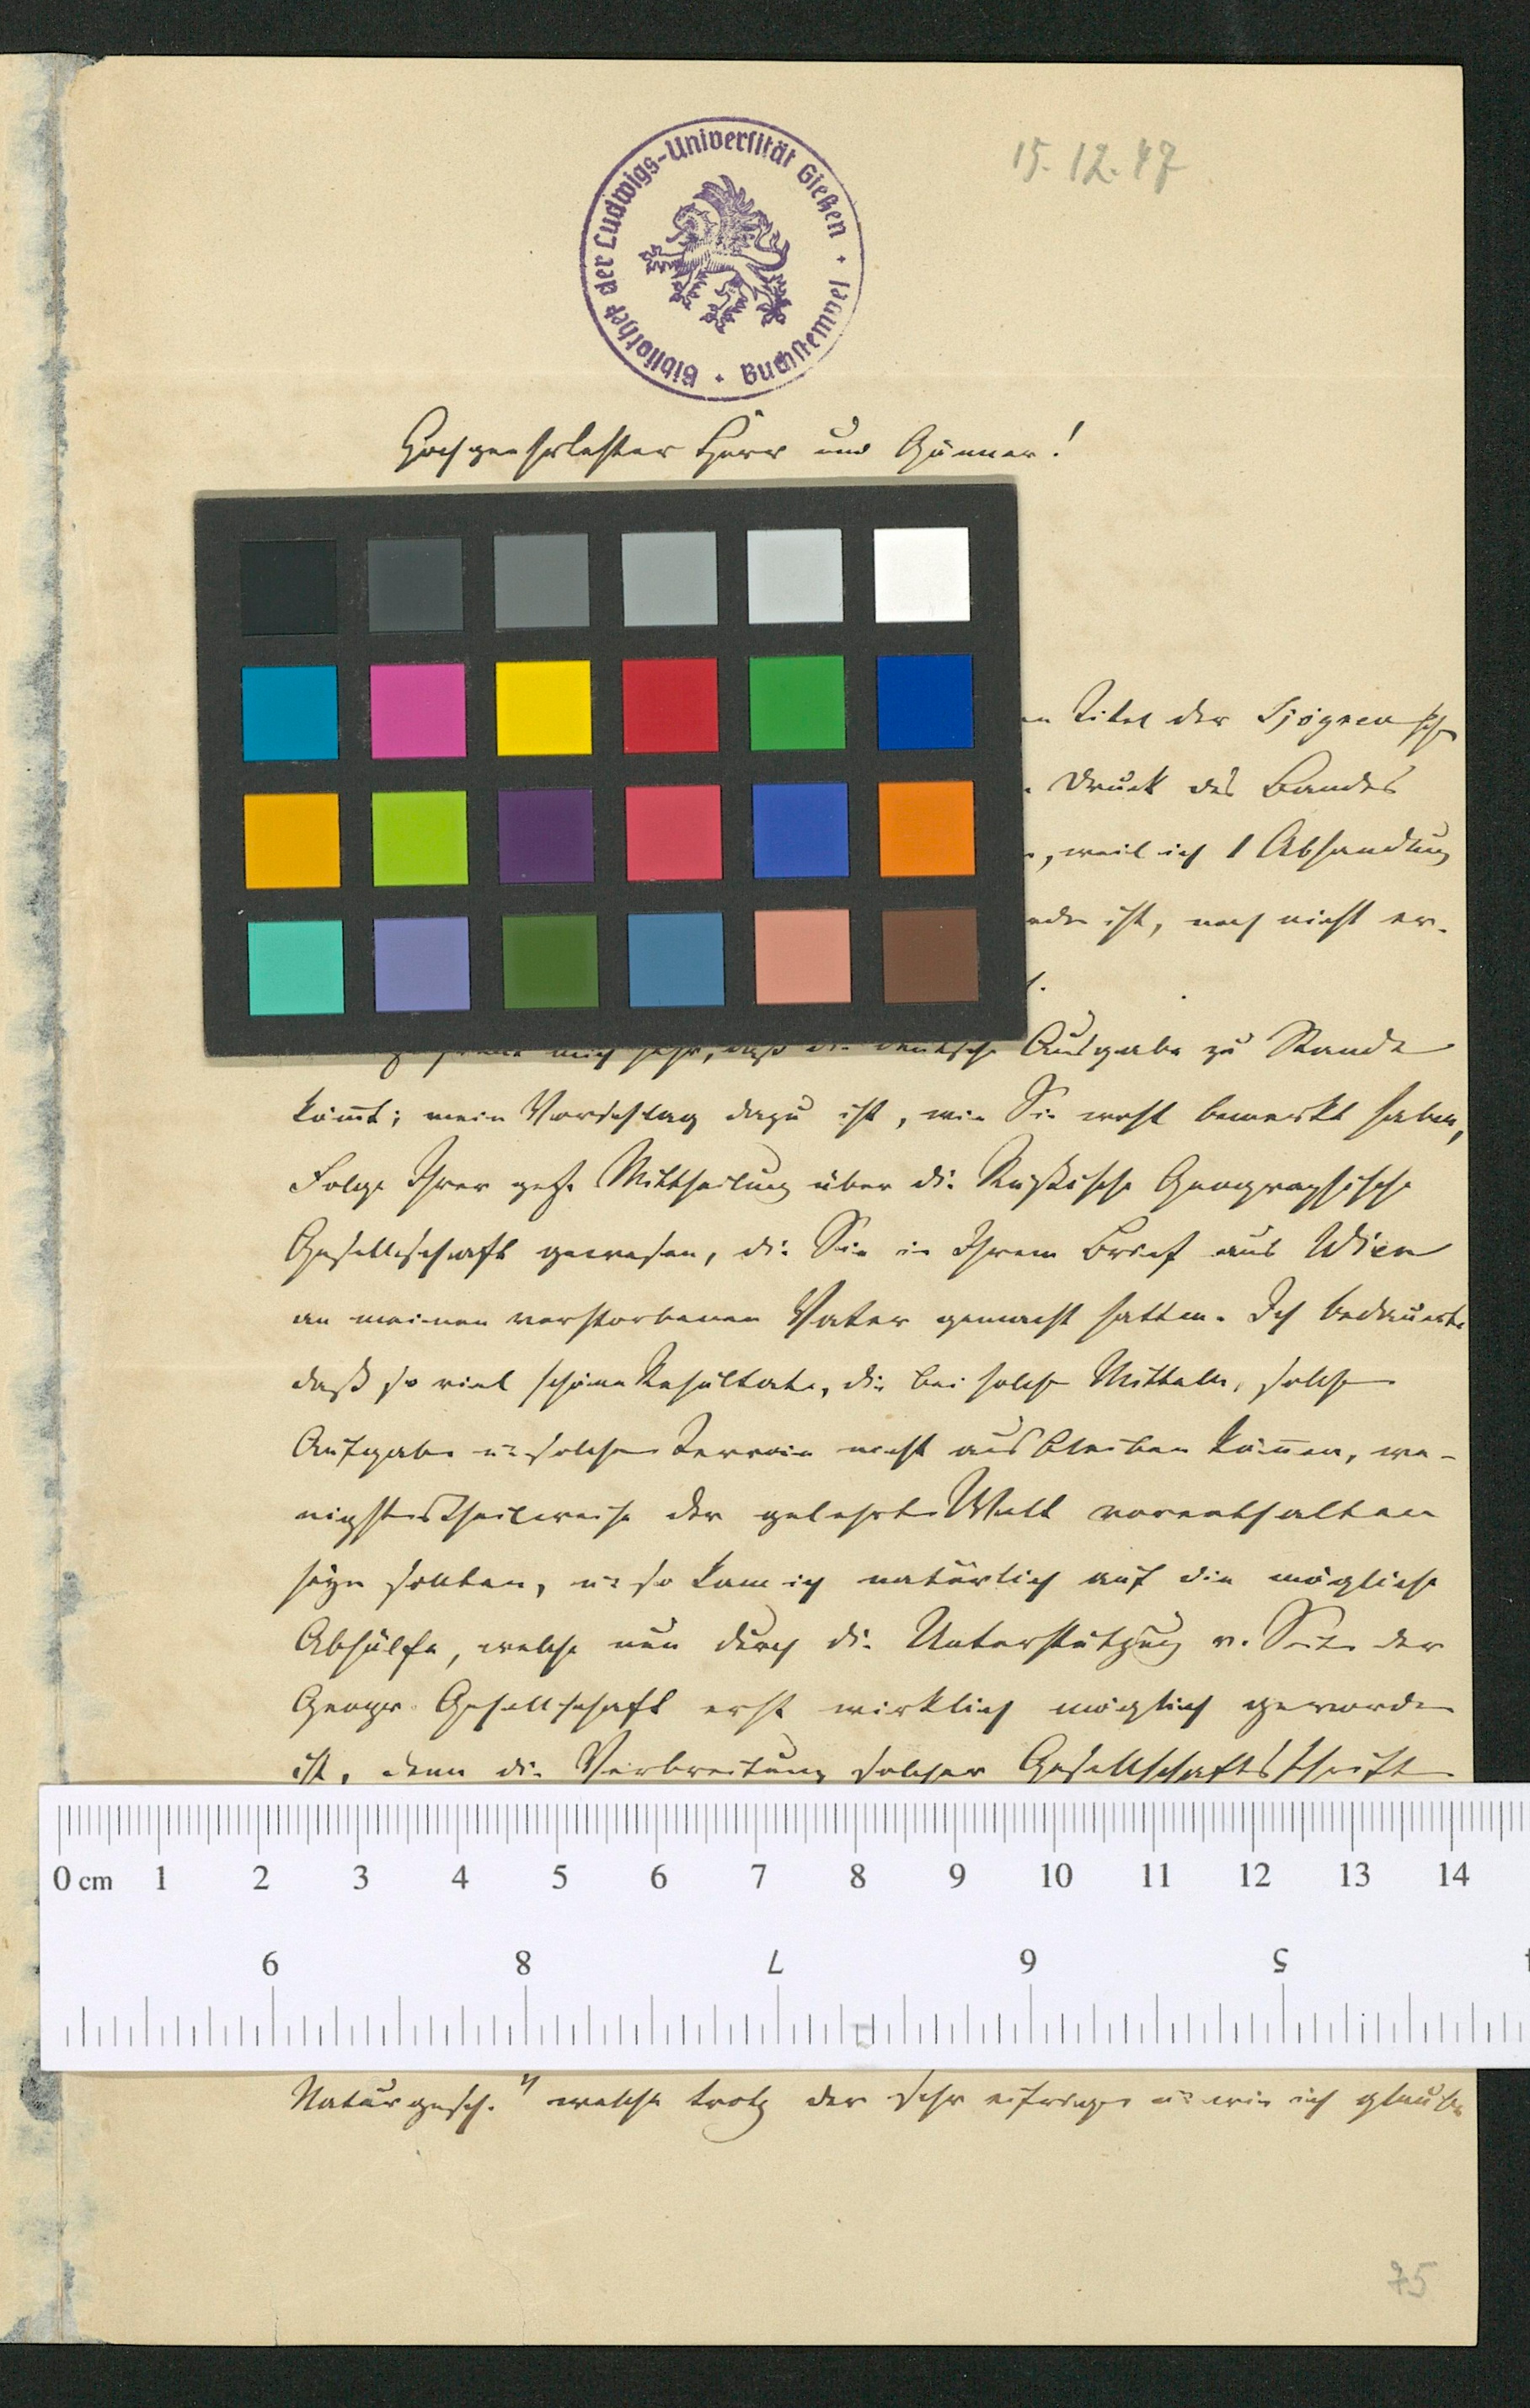 Bibliothek der Ludwigs-Universität Gießen + Buchstempel +
15.12.47
Hochgeehrtester Herr und Gönner!
Titel der Sjögrenschen
Druck des Bandes
, weil ich 1 Abhandlung
ist, noch nicht er-
mich sehr, daß die deutsche Ausgabe zu Stande
kom̄t; mein Vorschlag dazu ist, wie Sie wohl bemerkt haben,
Folge Ihrer gef. Mittheilung über die Russische Geographische
Gesellschaft gewesen, die Sie in Ihrem Brief aus Wien
an meinen verstorbenen Vater gemacht hatten. Ich bedauerte
daß so viel schöne Resultate, die bei solchen Mitteln, solcher
Aufgabe u. solchem Terrain nicht ausbleiben kön̄en, we-
nigstens theilweise der gelehrten Welt vorenthalten
seyn sollten, u. so kam ich natürlich auf die mögliche
Abhülfe, welche nun durch die Unterstützung v. Seiten der
Geogr. Gesellschaft erst wirklich möglich geworden
ist, denn die Verbreitung solcher Gesellschaftsschriften
0 cm 1 2 3 4 5 6 7 8 9 10 11 12 13 14
9 8 7 6 5
Naturgesch." welche trotz der sehr eifrigen u. wie ich glaube
75